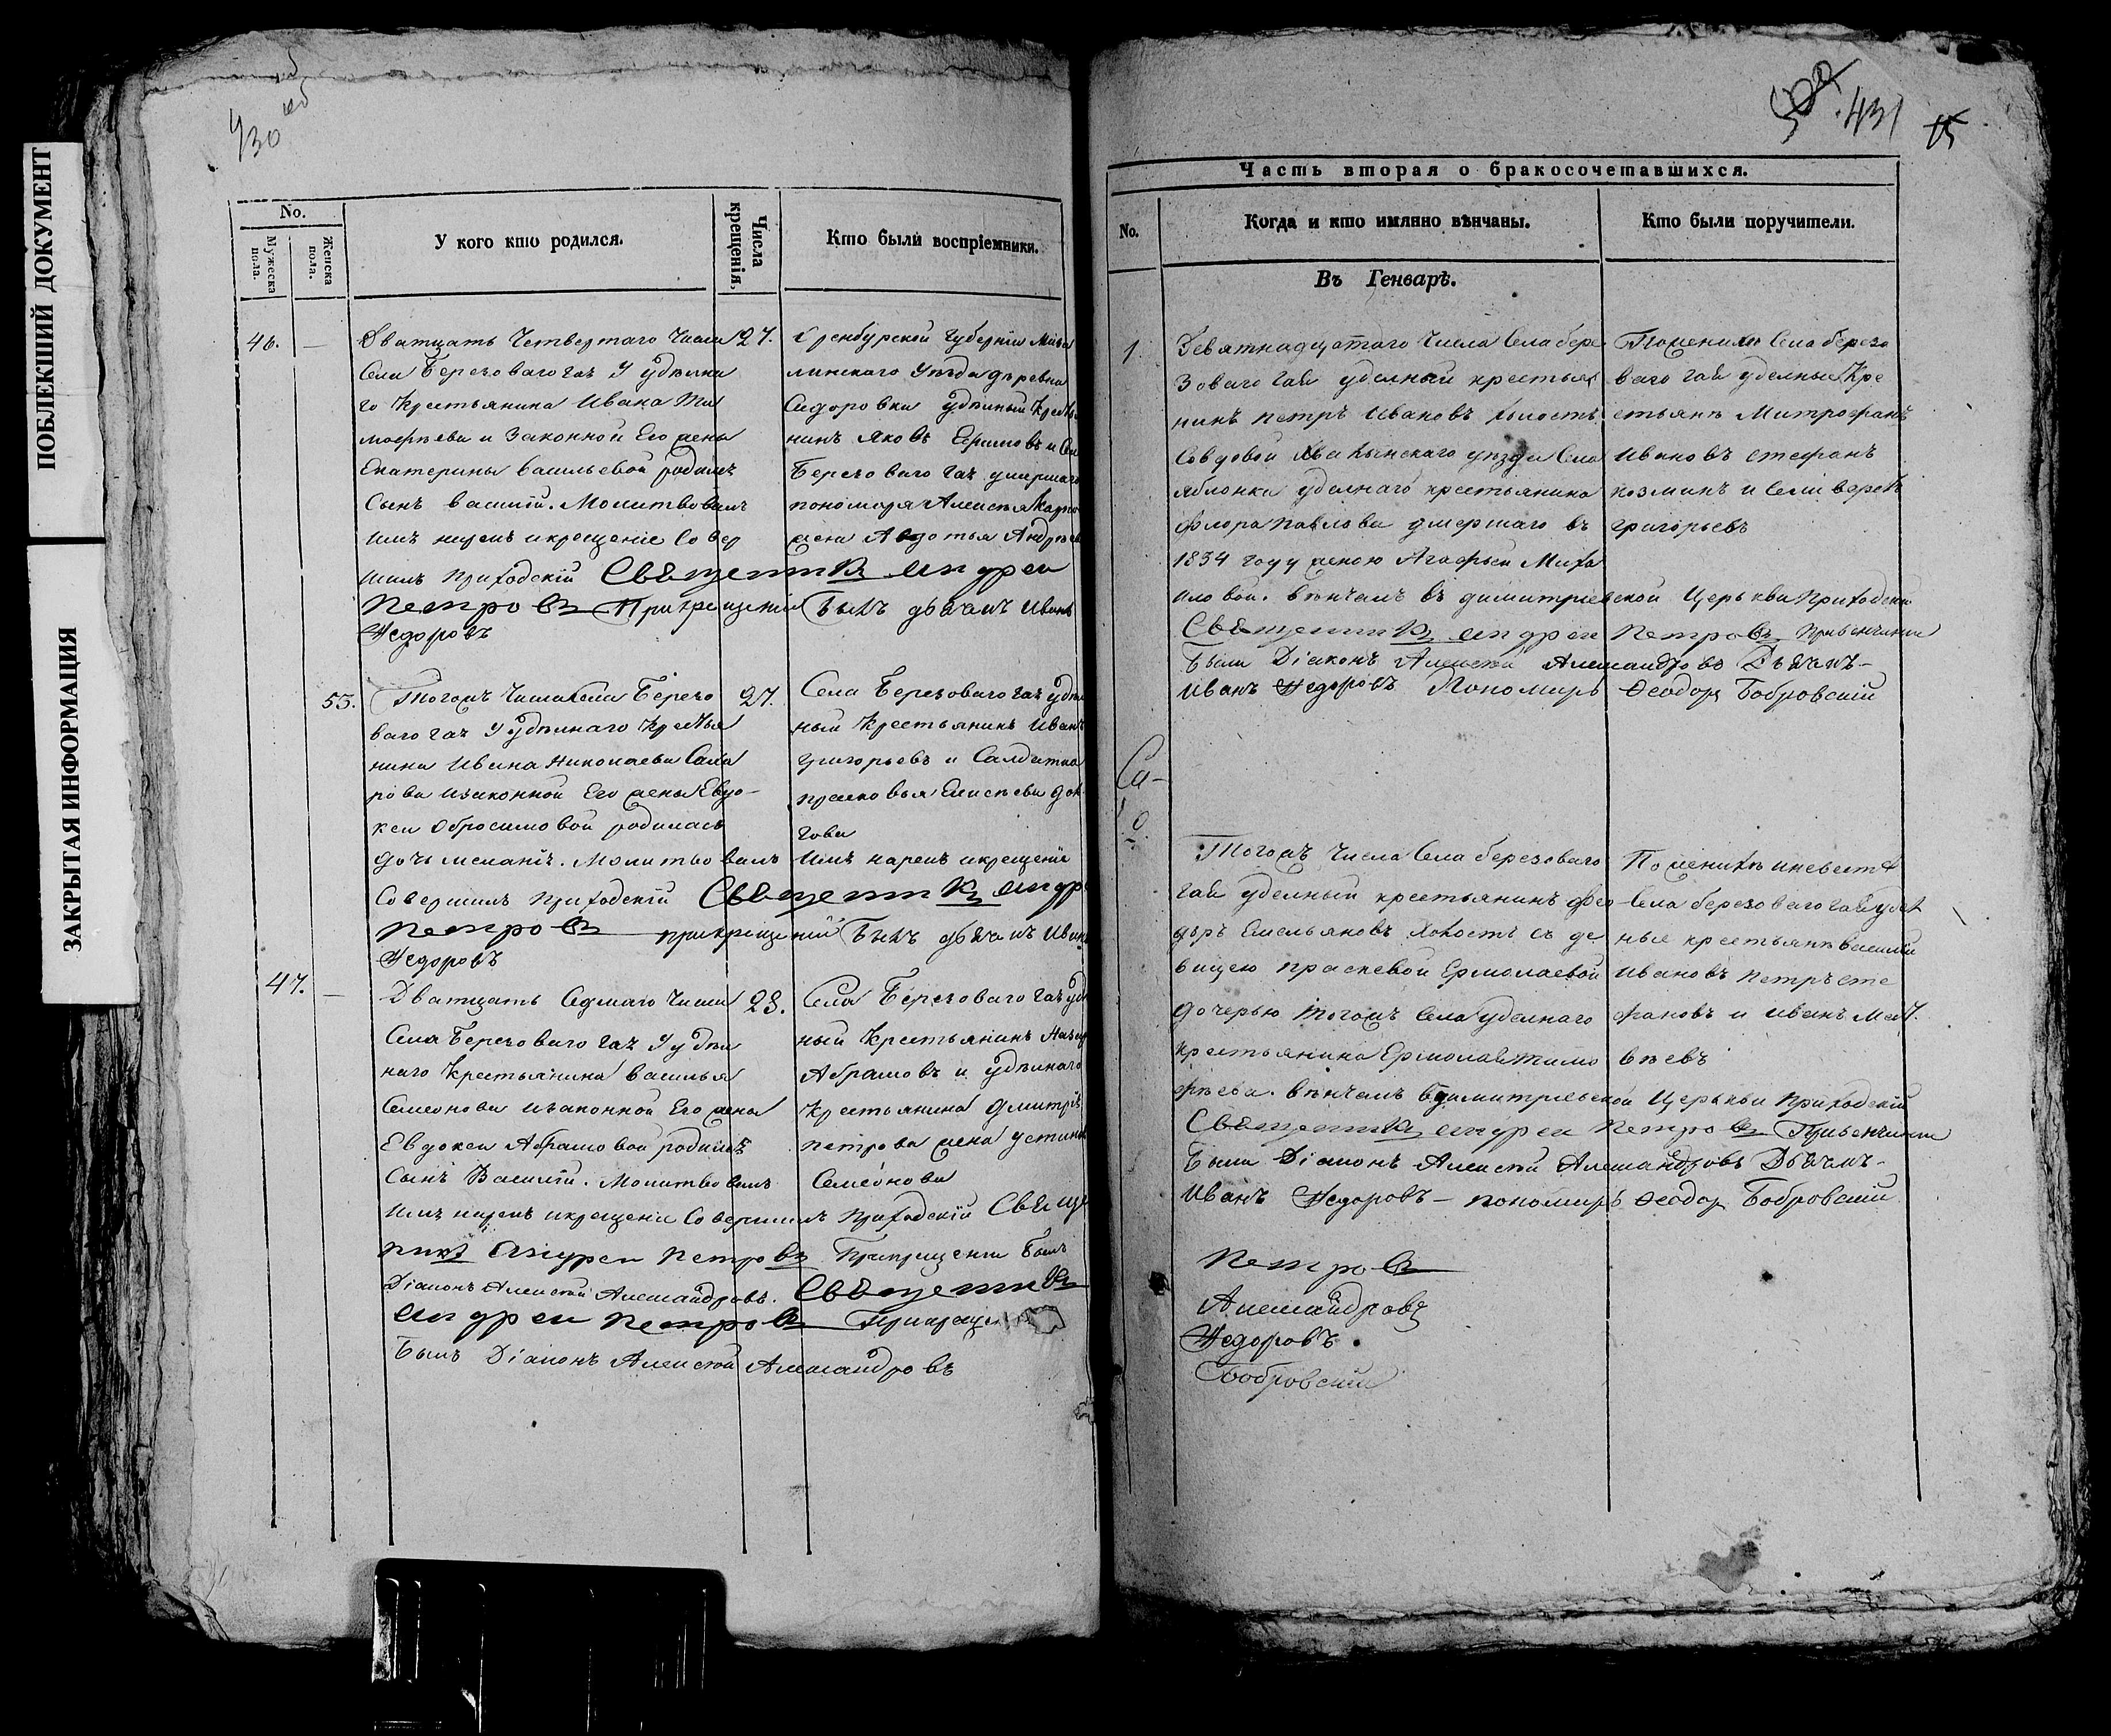 ПОБЛЕКШИЙ ДОКУМЕНТ
ЗАКРЫТАЯ ИНФОРМАЦИЯ
430 об
No.
Мужеска пола.
Женска пола.
У кого кто родился.
Числа крещенія,
Кто были воспріемники.
46. — Дватцать Четвертаго Числа 27.
Села Березоваго гая У удѣлна
го Крестьянина Ивана Ти
мофѣева и Законной Его жены
Екатерины Васильевой родился
Сынъ Василій. Молитвовалъ
имя нарекъ и крещеніе Совер
шилъ Приходскій Священникъ Андреи
Петровъ При крещеніи Былъ дьячокъ Иванъ
Федоровъ
Оренбурской Губерніи
линскаго Уѣзда деревни
Сидоровки Удѣлный
нинъ Яковъ Ефимовъ и
Березоваго гая умершаго
пономаря Алексея
жена Авдотья
53. Тогожъ Числа Села Березо 27.
ваго гая У Удѣлнаго Кресть
нина Ивана Николаева
рова и законной Его жены Евдо-
кеи Обросимовой родилась
дочь Меланія. Молитвовалъ Имя нарекъ и крещеніе
Совершилъ Приходскій Священникъ
Петровъ при крещеніи Былъ дьячокъ
Федоровъ
Села Березоваго гая
ный Крестьянинъ Иванъ
Григорьевъ и Салдатка
прасковья
47. — Дватцать Седмаго Числа 28.
Села Березоваго гая У удѣл
наго Крестьянина Василья
Семеонова и законной Его жены
Евдокеи Абрамовой родился
Сынъ Василій. Молитвовалъ
Имя нарекъ и крещеніе Совершилъ Приходскій Свяще
никъ Андреи Петровъ При крещеніи былъ
Діаконъ Алексей Александровъ. Священникъ
Андреи Петровъ При креще
Былъ Діаконъ Алексей Александровъ
Села Березоваго гая
ный Крестьянинъ
Абрамовъ и удѣлнаго
Крестьянина Дмитрія
Петрова жена Устинья
Семеонова
431
Часть вторая о бракосочетавшихся.
No.
Когда и кто имянно вѣнчаны.
Кто были поручители.
Въ Генварѣ.
1 Девятнадцатаго Числа Села бере
зоваго гая уделный крестья
нинъ Петръ Ивановъ холостъ
Со вдовой уѣзда Села
Яблонки уделнаго крестьянина
Флора Павлова умершаго въ
1834 году женою Агафьей Миха
иловой. вѣнчалъ въ димитріевской Церькви Приходскій
Священникъ Андреи Петровъ При венчаніи
Были Діаконъ Алексей Александровъ Дьячокъ-
Иванъ Федоровъ Пономарь Феодоръ Бобровскій
По женихѣ Села березо
ваго гая уделные Кре
стьяне Митрофанъ
Ивановъ Стефанъ
Козминъ и
Григорьевъ
Тогожъ Числа Села березоваго
гая уделный крестьянинъ Фео
доръ Емельяновъ холостъ съ де
вицею Праскевой Ермолаевой
дочерью тогожъ Села уделнаго
крестьянина Ермолая Тимо
фѣева. вѣнчалъ в димитріевской Церькви Приходскій
Священникъ Андреи Петровъ При венчаніи
Были Діаконъ Алексей Александровъ Дьячокъ-
Иванъ Федоровъ — пономарь Феодоръ Бобровскій
По женихѣ и невесте
Села березоваго гая удел
ные крестьяне Василій
Ивановъ Петръ Сте
фановъ и Иванъ Мат
вѣевъ
Петровъ
Александровъ
Федоровъ.
Бобровскій